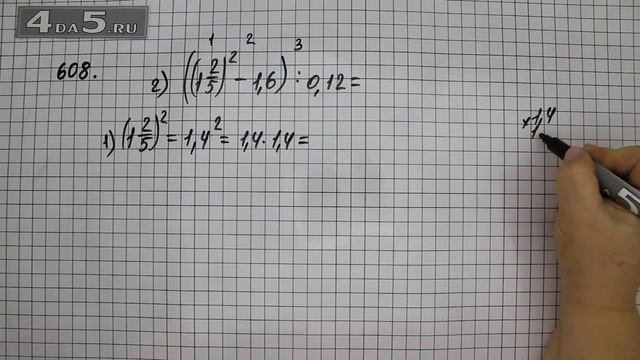 4DA5.RU
608.
1 2 3
2) ((1 2/5)² - 1,6) : 0,12 =
1) (1 2/5)² = 1,4² = 1,4 · 1,4 =
× 1,4
1,